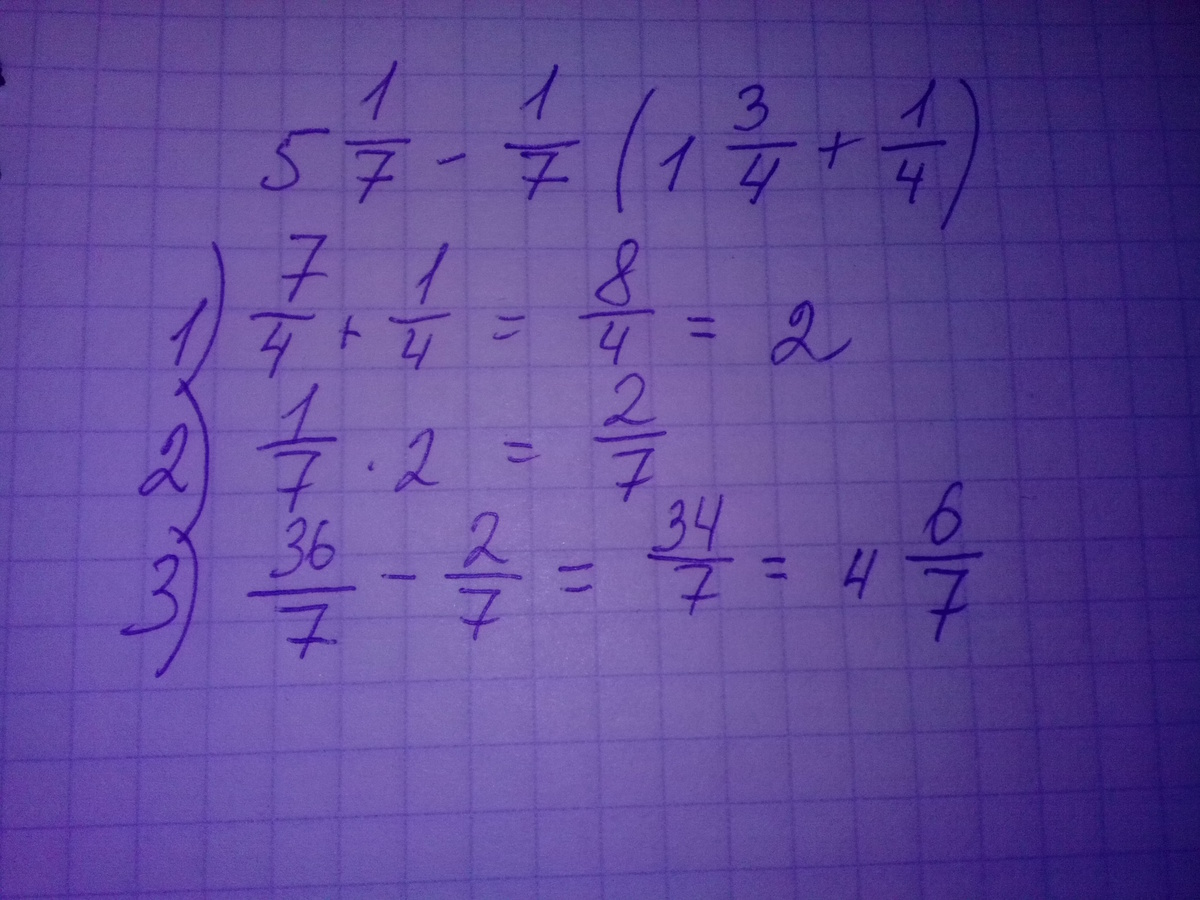 5 1/7 - 1/7 (1 3/4 + 1/4)
1) 7/4 + 1/4 = 8/4 = 2
2) 1/7 · 2 = 2/7
3) 36/7 - 2/7 = 34/7 = 4 6/7